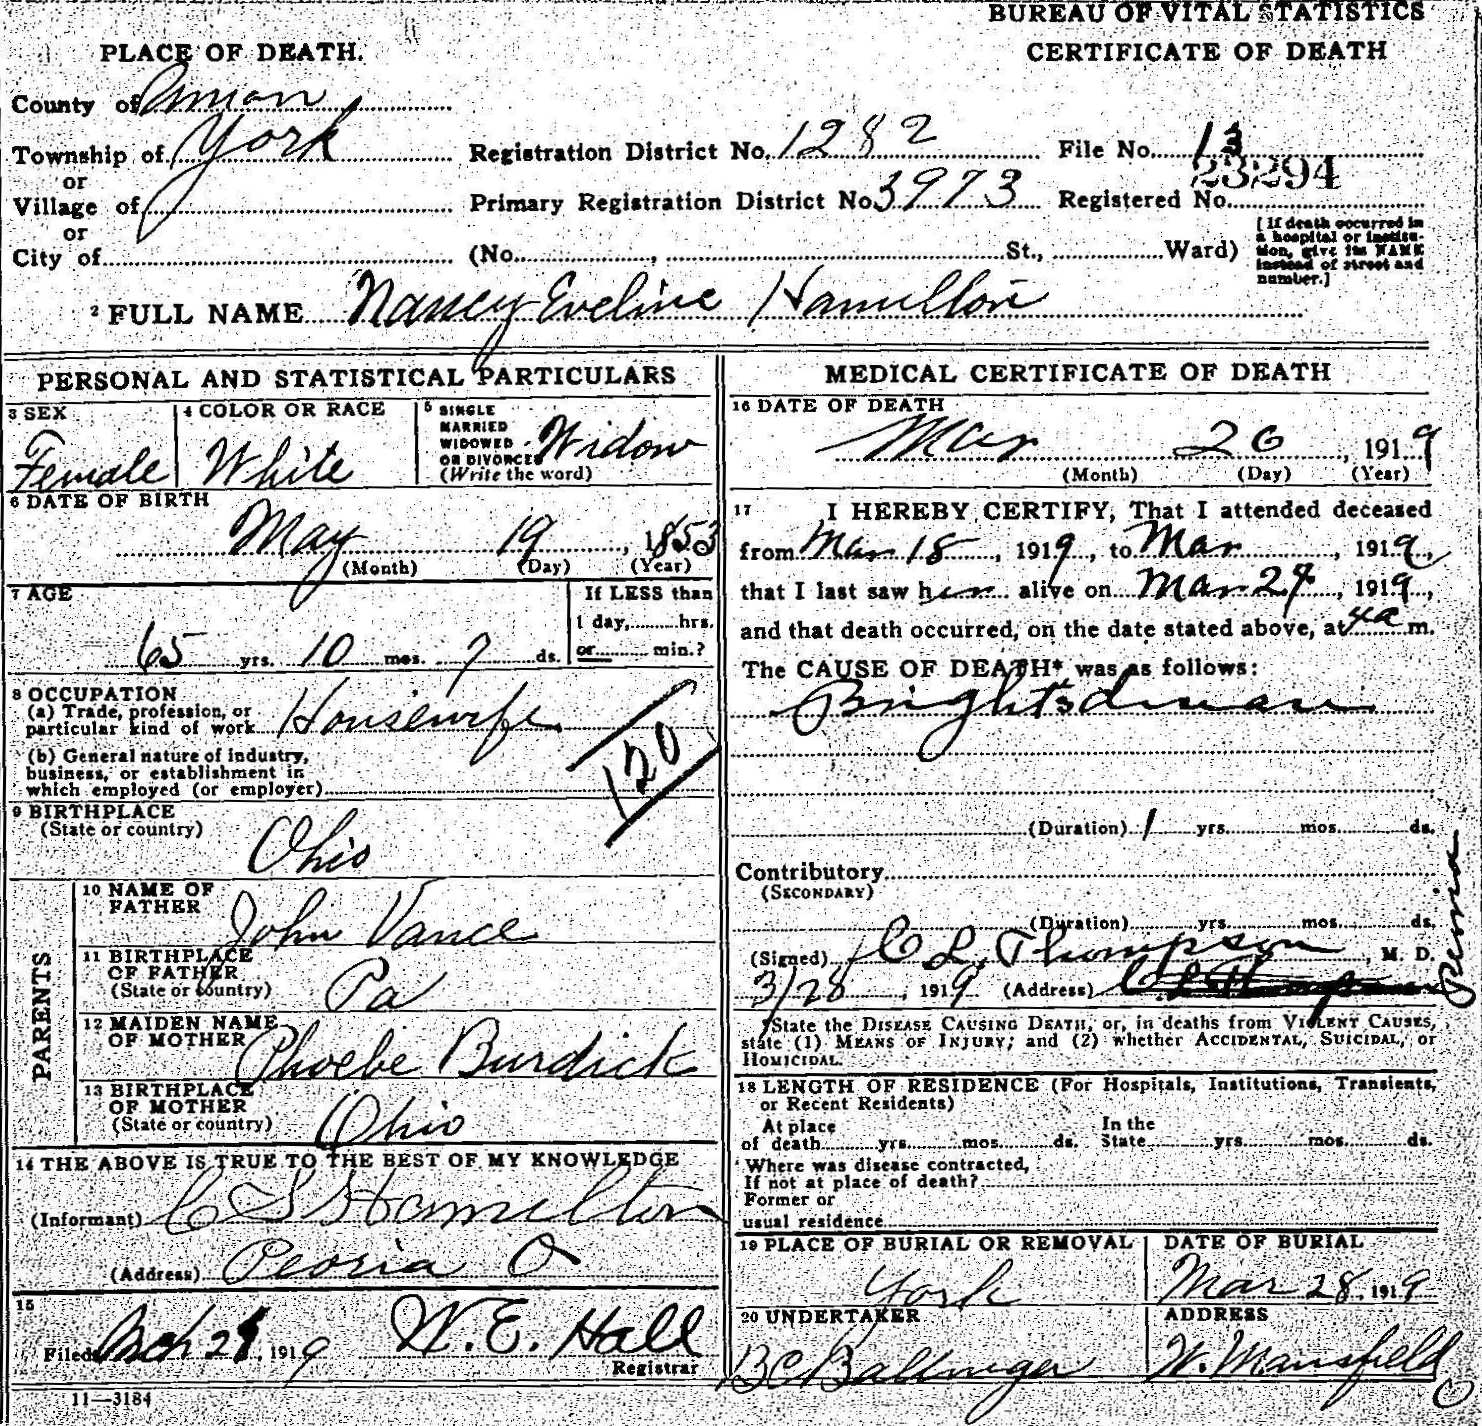 BUREAU OF VITAL STATISTICS
PLACE OF DEATH.
CERTIFICATE OF DEATH
County of Union
Township of York Registration District No. 1282 File No. 13
or
23294
Village of Primary Registration District No 3973 Registered No.
or
City of (No. , St., Ward)
[If death occurred in
a hospital or institu-
tion, give its NAME
instead of street and
number.]
2 FULL NAME Nancy Eveline Hamilton
PERSONAL AND STATISTICAL PARTICULARS
3 SEX
Female
4 COLOR OR RACE
White
5 SINGLE
MARRIED
WIDOWED
OR DIVORCED
(Write the word)
Widow
6 DATE OF BIRTH
May 19, 1853
(Month) (Day) (Year)
7 AGE
65 yrs. 10 mos. 7 ds.
If LESS than
1 day, hrs.
or min.?
8 OCCUPATION
(a) Trade, profession, or
particular kind of work Housewife
(b) General nature of industry,
business, or establishment in
which employed (or employer)
120
9 BIRTHPLACE
(State or country)
Ohio
PARENTS
10 NAME OF
FATHER
John Vance
11 BIRTHPLACE
OF FATHER
(State or country)
Pa
12 MAIDEN NAME
OF MOTHER
Phoebe Burdick
13 BIRTHPLACE
OF MOTHER
(State or country)
Ohio
14 THE ABOVE IS TRUE TO THE BEST OF MY KNOWLEDGE
(Informant) C S Hamilton
(Address) Peoria O
15
Filed Mch 28, 1919 W. E. Hall
Registrar
11—3184
MEDICAL CERTIFICATE OF DEATH
16 DATE OF DEATH
Mar 26, 1919
(Month) (Day) (Year)
17 I HEREBY CERTIFY, That I attended deceased
from Mar 18, 1919, to Mar, 1919,
that I last saw her alive on Mar 24, 1919,
and that death occurred, on the date stated above, at 4a m.
The CAUSE OF DEATH* was as follows:
Brights disease
(Duration) 1 yrs. mos. ds.
Contributory
(SECONDARY)
(Duration) yrs. mos. ds.
(Signed) C L Thompson, M. D.
3/28, 1919 (Address)
Peoria
*State the DISEASE CAUSING DEATH, or, in deaths from VIOLENT CAUSES,
state (1) MEANS OF INJURY; and (2) whether ACCIDENTAL, SUICIDAL, or
HOMICIDAL.
18 LENGTH OF RESIDENCE (For Hospitals, Institutions, Transients,
or Recent Residents)
At place In the
of death yrs. mos. ds. State yrs. mos. ds.
Where was disease contracted,
If not at place of death?
Former or
usual residence
19 PLACE OF BURIAL OR REMOVAL
York
DATE OF BURIAL
Mar 28, 1919
20 UNDERTAKER
BC Ballinger
ADDRESS
W. Mansfield